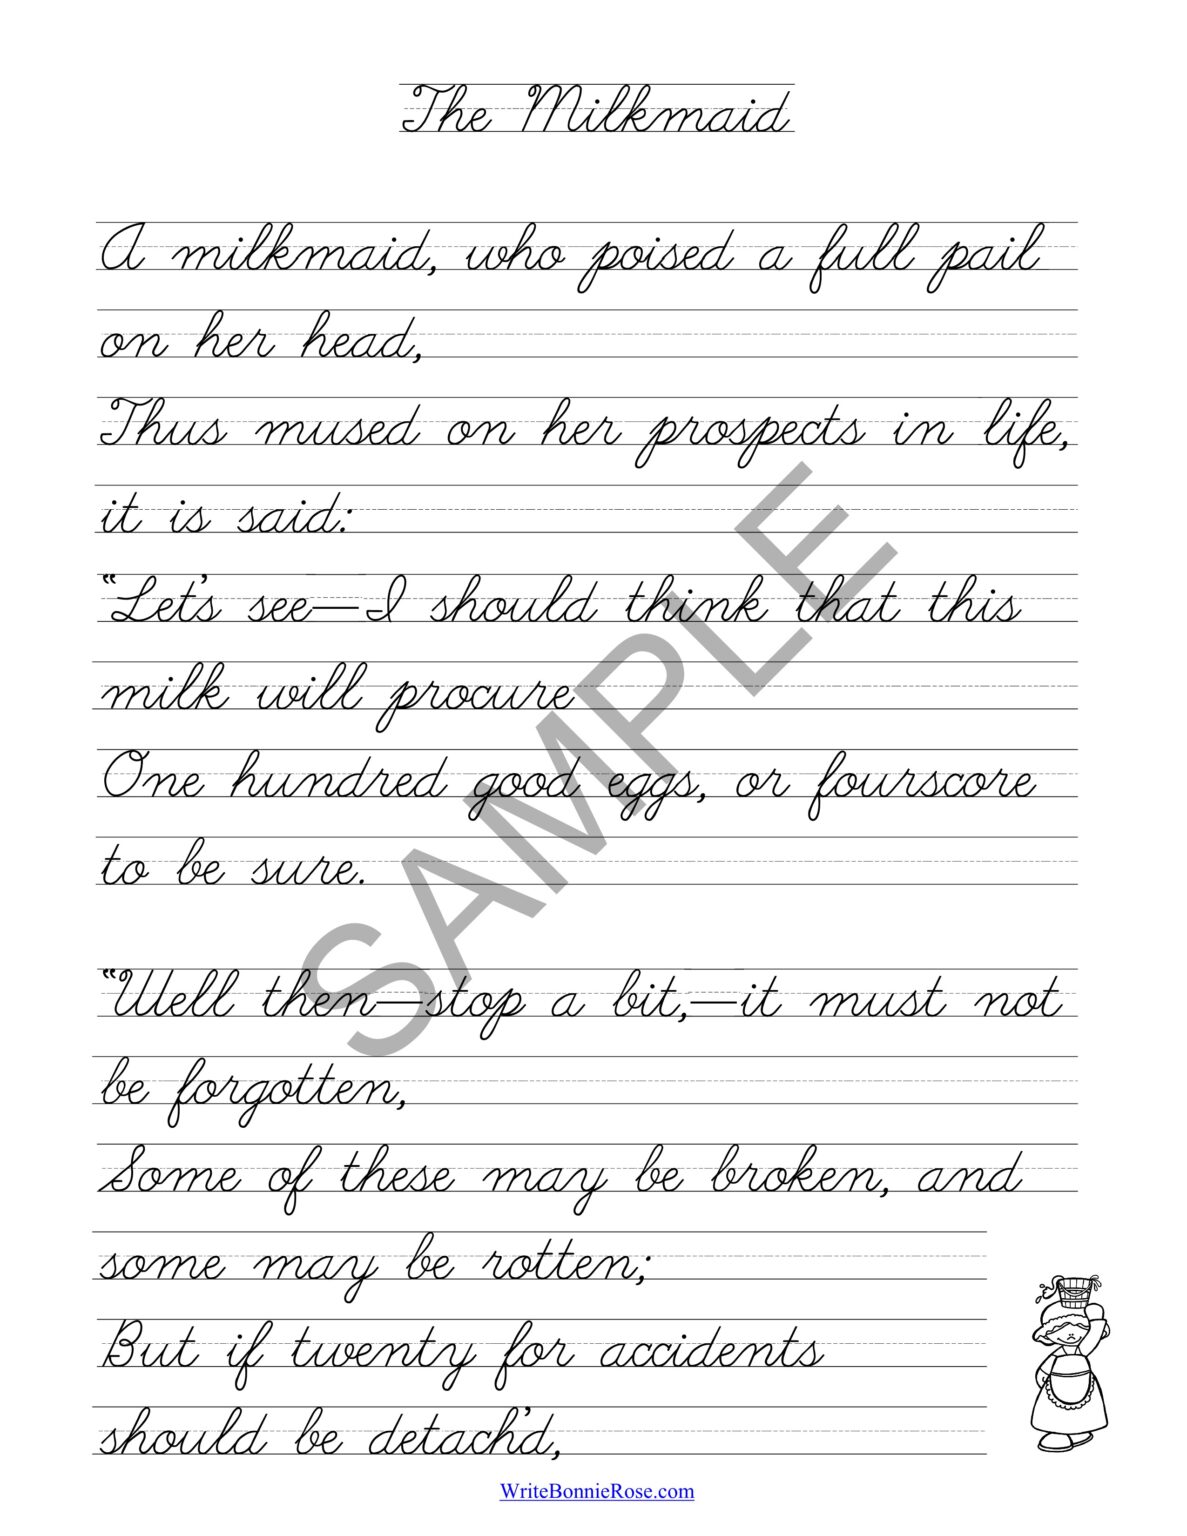 The Milkmaid
A milkmaid, who poised a full pail
on her head,
Thus mused on her prospects in life,
it is said:
“Let's see—I should think that this
milk will procure
One hundred good eggs, or fourscore
to be sure.
“Well then—stop a bit,—it must not
be forgotten,
Some of these may be broken, and
some may be rotten;
But if twenty for accidents
should be detach'd,
SAMPLE
WriteBonnieRose.com